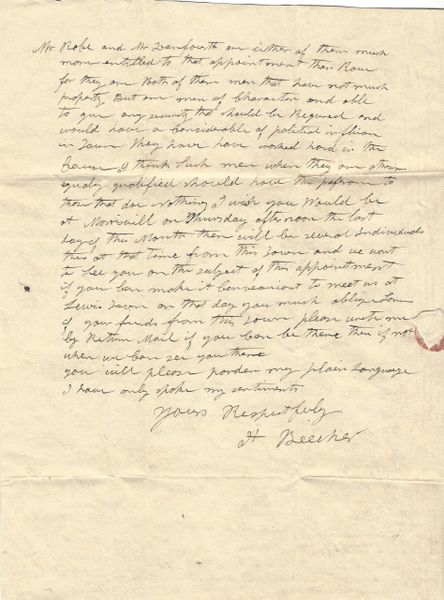 Mr Robe and Mr Danfourth are either of them much
more entitled to that appointment than Rowe
for they are Both of them men that have not much
property But are men of Character and able
to give any security that should be Required and
would have a Considerable of political
in Town they have have worked hard in the
Cause I think Such men when they are
equaly qualified should have the to
those that doe nothing I wish you Would be
at Morrisvill on Thursday afternoon the last
day of this Month there will be several Individuals
there at that time from this Town and we want
to See you on the subject of this appointment
if you Can make it Conveaniant to meet us at
Town on that day you much oblige
of your friends from this Town please write me
by Return Mail if you Can be there then if not
when we can see you there
you will please parden my plain Language
I have only spoke my sentiments
Yours Respectfuly
H Beecher